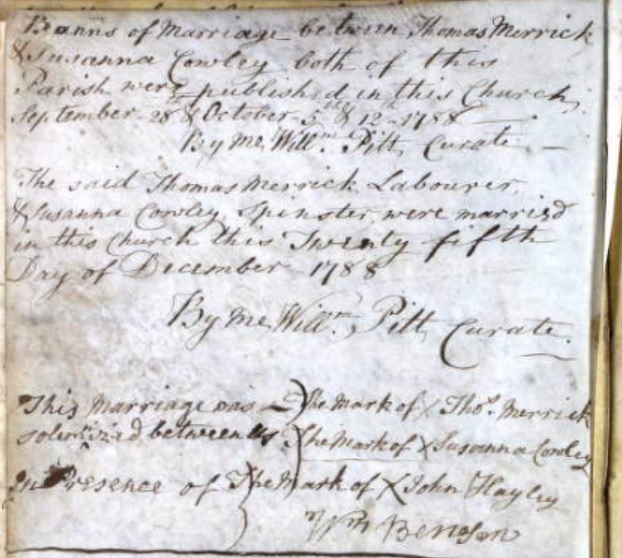 Banns of Marriage between Thomas Merrick
& Susanna Cowley both of this
Parish were published in this Church
September 28 & October 5th & 12 - 1788
By me, Willm. Pitt, Curate
The said Thomas Merrick, Labourer,
& Susanna Cowley, Spinster, were married
in this Church this Twenty fifth
Day of December 1788
By me, Willm. Pitt, Curate.
This Marriage was The Mark of X Thos. Merrick
solemnized between us The Mark of X Susanna Cowley
In Presence of The Mark of X John Hayley
Wm